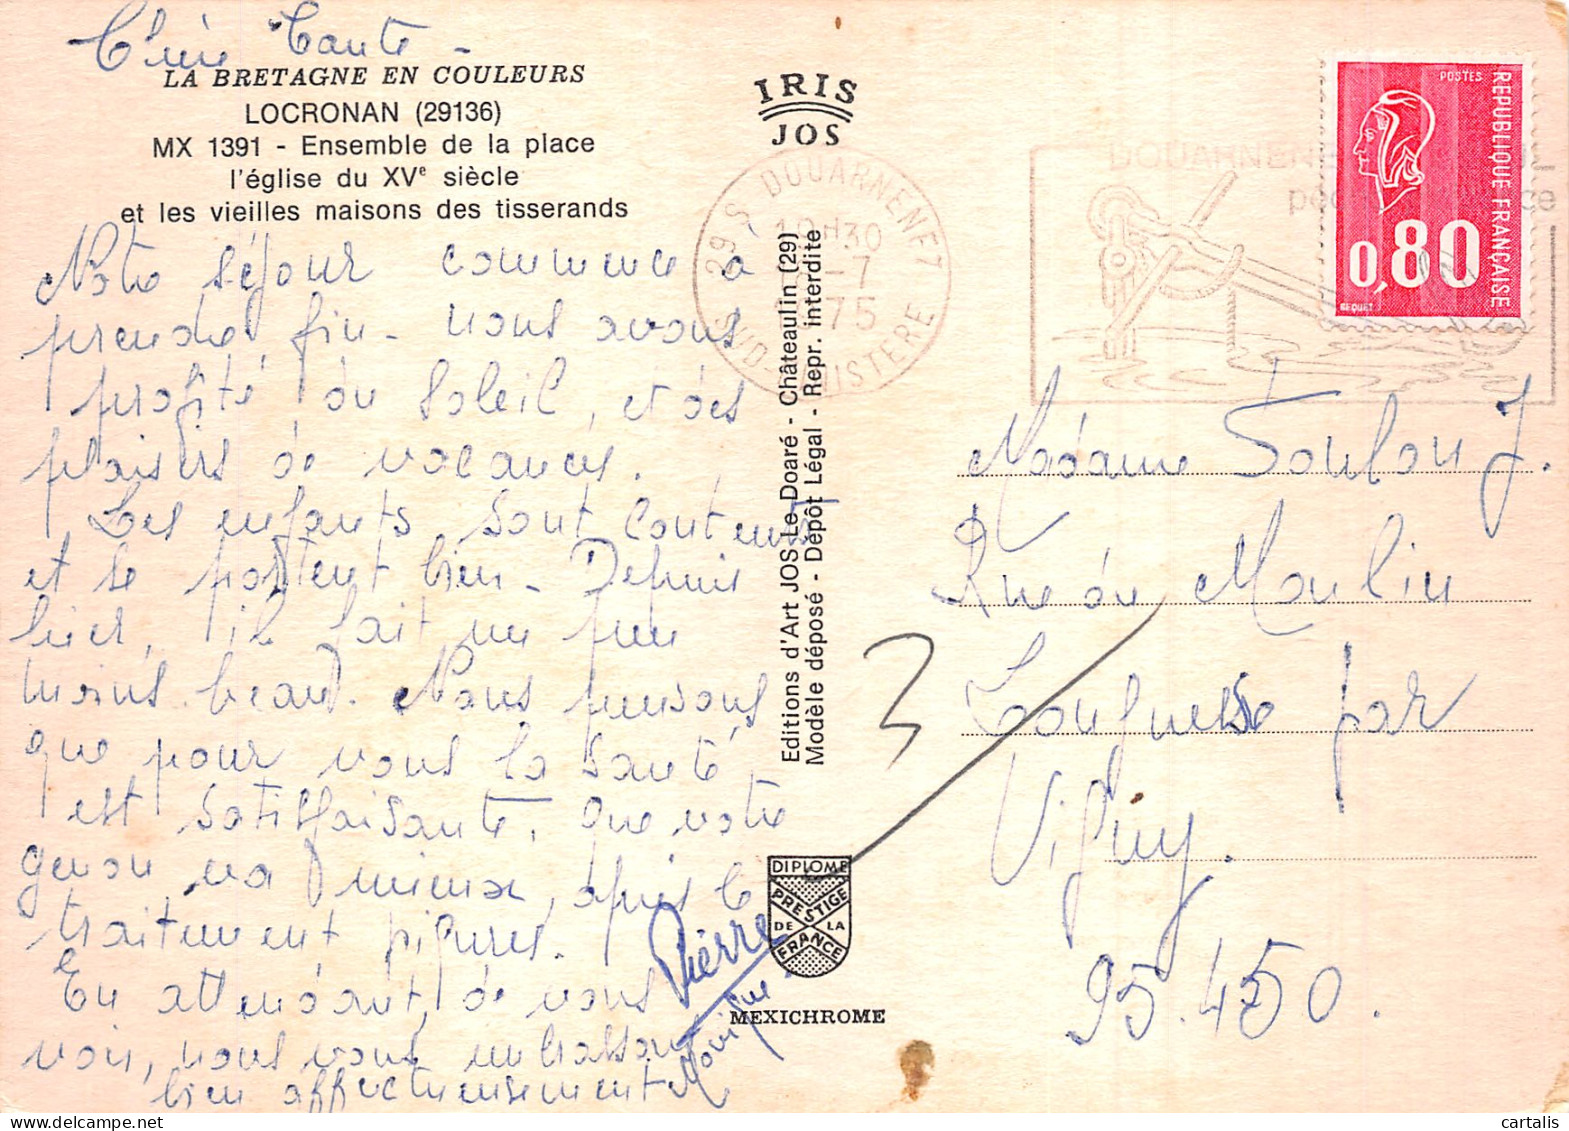 Chère Tante -
LA BRETAGNE EN COULEURS
LOCRONAN (29136)
MX 1391 - Ensemble de la place
l'église du XVe siècle
et les vieilles maisons des tisserands
Notre séjour commence à
prendre fin - nous avons
profité du soleil, et des
plaisirs de vacances.
Les enfants sont contents
et se portent bien - Depuis
hier, il fait un peu
moins beau. Nous pensons
que pour vous la santé
est satisfaisante, que votre
genou va mieux, après le
traitement piqures.
En attendant de vous
voir, nous vous embrassons
bien affectueusement
Pierre
Monique
IRIS
JOS
Editions d'Art JOS Le Doaré - Châteaulin (29)
Modèle déposé - Dépôt Légal - Repr. interdite
DIPLOME
PRESTIGE
DE LA
FRANCE
MEXICHROME
29 S DOUARNENEZ
H30
-7
75
SUD-FINISTERE
DOUARNENEZ
POSTES
REPUBLIQUE FRANÇAISE
0,80
BEQUET
Madame Foulon J.
Rue du Moulin
Longuesse par
Vigny.
95.450.
3
cartalis